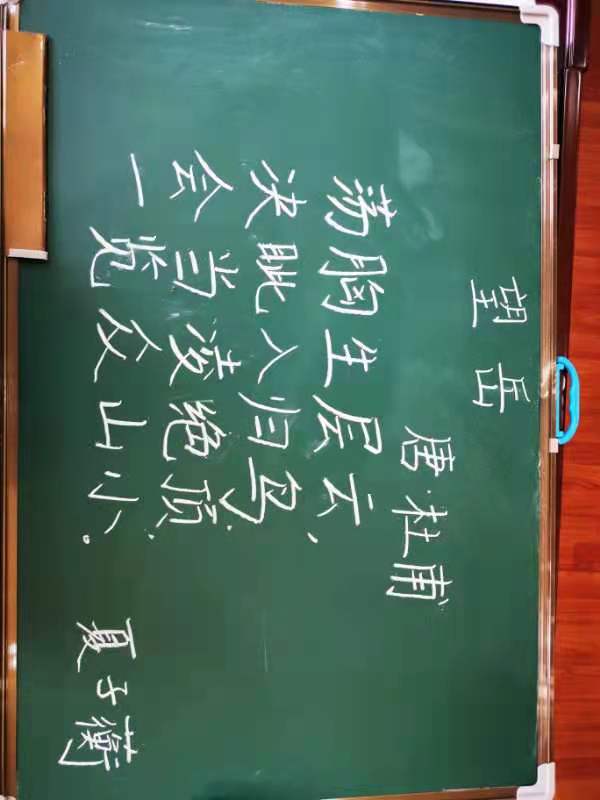 望岳
唐·杜甫
荡胸生层云，
决眦入归鸟。
会当凌绝顶，
一览众山小。
夏子蘅